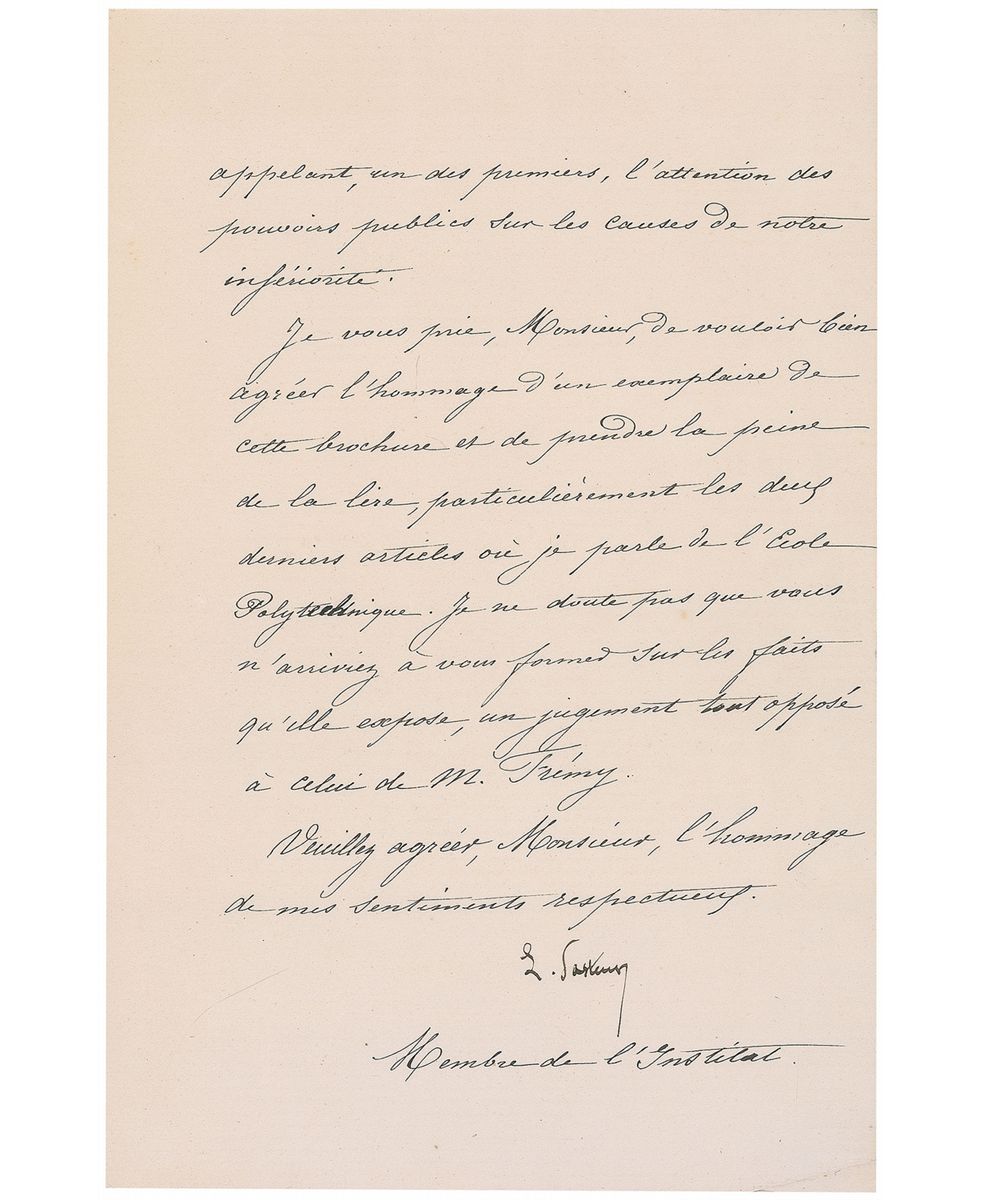 appelant, un des premiers, l'attention des
pouvoirs publics sur les causes de notre
infériorité.
Je vous prie, Monsieur, de vouloir bien
agréer l'hommage d'un exemplaire de
cette brochure et de prendre la peine
de la lire, particulièrement les deux
derniers articles où je parle de l'Ecole
Polytechnique. Je ne doute pas que vous
n'arriviez à vous former sur les faits
qu'elle expose, un jugement tout opposé
à celui de M. Frémy.
Veuillez agréer, Monsieur, l'hommage
de mes sentiments respectueux.
L. Pasteur
Membre de l'Institut.